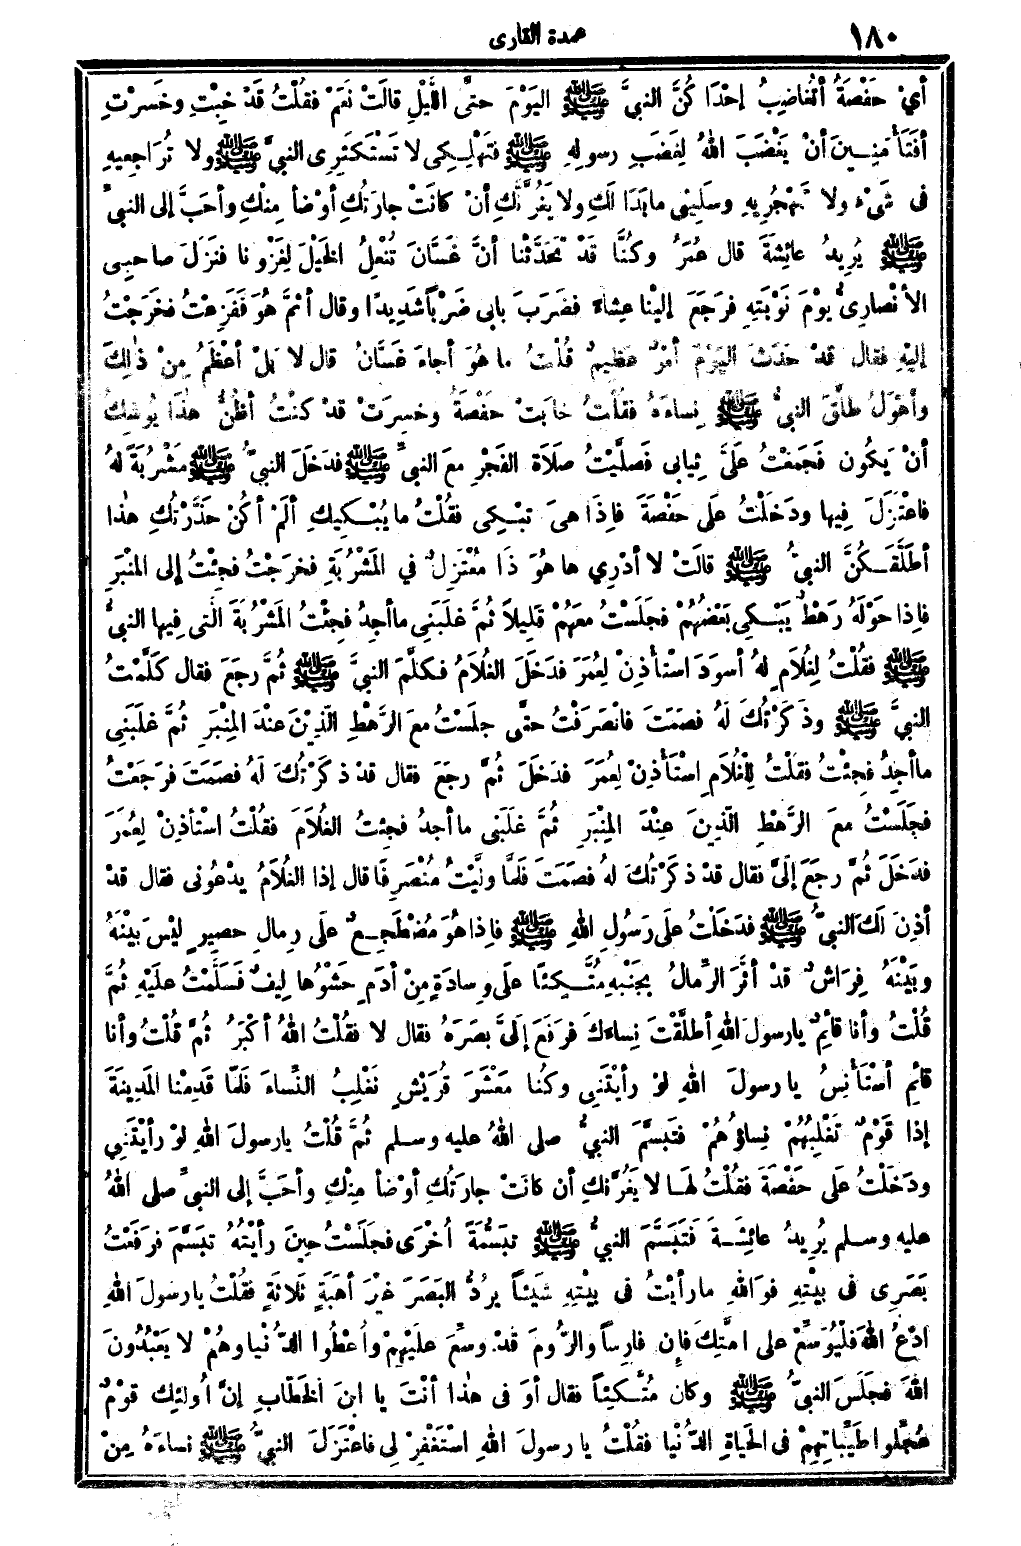 ١٨٠ عمدة القارى
أيْ حَفْصَةُ أتُغاضِبُ إحْدَا كُنَّ النبيَّ ﷺ اليَوْمَ حتَّى اللَّيْلِ قالَتْ نَعَمْ فقُلْتُ قَدْ خِبْتِ وخَسِرْتِ
أفَتَأمَنِينَ أنْ يَغْضَبَ اللهُ لِغَضَبِ رسولِهِ ﷺ فتَهْلِكِى لا تَسْتَكْثِرِى النبيَّ ﷺ ولا تُرَاجِعِيهِ
فى شَىْءٍ ولا تَهْجُرِيهِ وسَلِينِي مابَدَا لَكِ ولا يَغُرَّنَّكِ أنْ كانَتْ جارَتُكِ أوْضأَ مِنْكِ وأحَبَّ إلى النبيِّ
ﷺ يُرِيدُ عائِشَةَ قال عُمَرُ وكُنَّا قَدْ تَحَدَّثْنا أنَّ غَسَّانَ تُنْعِلُ الخَيْلَ لِغَزْوِنا فنَزَلَ صاحِبِى
الأنْصارِىُّ يوْمَ نَوْبَتِهِ فرَجَعَ إلَيْنا عِشاءً فضَرَبَ بابِى ضَرْباً شَدِيدًا وقال أثَمَّ هُوَ فَفَزِعْتُ فخَرَجْتُ
إليْهِ فقال قدْ حَدَثَ اليَوْمَ أمْرٌ عظِيمٌ قُلْتُ ما هُوَ أجاءَ غَسَّانُ قال لا بَلْ أعْظَمُ مِنْ ذٰلِكَ
وأهْوَلُ طلَّقَ النبيُّ ﷺ نِساءَهُ فقُلْتُ خابَتْ حَفْصَةُ وخَسِرَتْ قدْ كنْتُ أظُنُّ هٰذَا يُوشِكُ
أنْ يَكُون فجَمَعْتُ علَىَّ ثِيابِى فَصَلَّيْتُ صَلَاةَ الفَجْرِ معَ النبيِّ ﷺ فدَخَلَ النبيُّ ﷺ مَشْرُبَةً لهُ
فاعْتَزَلَ فِيها ودَخَلْتُ علَى حَفْصَةَ فإذَا هىَ تبْكِى فقُلْتُ ما يُبْكِيكِ ألَمْ أكُنْ حَذَّرْتُكِ هٰذا
أطَلَّقَكُنَّ النبيُّ ﷺ قالَتْ لا أدْرِي ها هُوَ ذَا مُعْتَزِلٌ في المَشْرُبَةِ فخَرَجْتُ فجِئْتُ إلى المِنْبَرِ
فإذا حَوْلَهُ رَهْطٌ يَبْكِى بَعْضُهُمْ فجَلَسْتُ معَهُمْ قَلِيلاً ثُمَّ غلَبَنِى ماأجِدُ فجِئْتُ المَشْرُبَةَ الَّتِى فِيها النبيُّ
ﷺ فقُلْتُ لِغُلَامٍ لهُ أسوَدَ اسْتأْذِنْ لِعُمَرَ فدَخَلَ الغُلَامُ فكلَّمَ النبيَّ ﷺ ثُمَّ رجَعَ فقال كَلَّمْتُ
النبيَّ ﷺ وذَكَرْتُكَ لَهُ فصَمَتَ فانْصَرَفْتُ حتَّى جلَسْتُ معَ الرَّهْطِ الَّذِينَ عنْدَ المِنْبَرِ ثُمَّ غلَبَنِى
ماأجِدُ فجِئْتُ فقُلْتُ لِلْغُلَامِ اسْتَأْذِنْ لِعُمَرَ فدَخَلَ ثُمَّ رجَعَ فقال قدْ ذكَرْتُكَ لَهُ فصَمَتَ فرَجَعْتُ
فجَلَسْتُ معَ الرَّهْطِ الَّذِينَ عِنْدَ المِنْبَرِ ثُمَّ غلَبَنِى ما أجدُ فجِئتُ الغُلَامَ فقُلْتُ اسْتأذِنْ لِعُمَرَ
فدَخَلَ ثُمَّ رجَعَ إلَىَّ فقال قدْ ذكَرْتُكَ لهُ فصَمَتَ فَلَمَّا ولَّيْتُ مُنْصَرِفًا قال إذا الغُلَامُ يدْعُونى فقال قدْ
أذِنَ لَكَ النبيُّ ﷺ فدَخَلْتُ علَى رَسُولِ اللهِ ﷺ فإذا هُوَ مُضْطَجِعٌ علَى رِمالِ حصِيرٍ ليْسَ بَيْنَهُ
وبَيْنَهُ فِرَاشٌ قدْ أثَّرَ الرِّمالُ بجَنْبِهِ مُتَّكِئًا علَى وِسادَةٍ مِنْ أدَمٍ حَشْوُها لِيفٌ فَسَلَّمْتُ علَيْهِ ثُمَّ
قُلْتُ وأنا قائِمٌ يارسولَ اللهِ أطلَّقْتَ نِساءَكَ فرَفَعَ إلَىَّ بصَرَهُ فقال لا فقُلْتُ اللهُ أكْبَرُ ثُمَّ قُلْتُ وأنا
قائِم أسْتَأْنِسُ يا رسولَ اللهِ لوْ رأيْتَنِى وكُنا مَعْشَرَ قُرَيْشٍ نَغْلِبُ النِّساءَ فَلَمَّا قدِمْنا المَدِينَةَ
إذا قَوْمٌ تَغْلِبُهُمْ نِساؤُهُمْ فتَبَسَّمَ النبيُّ صلى اللهُ عليه وسلم ثُمَّ قُلْتُ يارسولَ اللهِ لوْ رأيْتَنِي
ودَخَلْتُ علَى حَفْصَةَ فقُلْتُ لهَا لا يَغُرَّنكِ أن كانَتْ جارَتُكِ أوْضأَ مِنْكِ وأحَبَّ إلى النبيِّ صلى اللهُ
عليه وسلم يُرِيدُ عائِشَةَ فَتَبَسَّمَ النبيُّ ﷺ تبَسُّمَةً أخْرَى فجَلَسْتُ حِينَ رأيْتُهُ تبَسَّمَ فرَفَعْتُ
بَصَرِى فى بيْتِهِ فوَاللهِ مارأيْتُ فى بيْتِهِ شَيْئاً يرُدُّ البَصَرَ غيْرَ أهَبَةٍ ثَلَاثَةٍ فقُلْتُ يارسولَ اللهِ
ادْعُ اللهَ فلْيُوَسِّعْ على امَّتِكَ فإن فارِساً والرُّومَ قَدْ وسِّعَ علَيْهِمْ وأُعْطُوا الدُّنْيا وهُمْ لا يَعْبُدُونَ
اللهَ فجلَسَ النبيُّ ﷺ وكان مُتَّكِئاً فقال أوَ فى هٰذا أنْتَ يا ابنَ الخَطّابِ إنَّ أُولئِكَ قوْمٌ
عُجِّلوا طَيِّباتِهِمْ فى الحَياةِ الدُّنْيا فقُلْتُ يا رسولَ اللهِ اسْتَغْفِرْ لِى فاعْتَزَلَ النبيُّ ﷺ نساءَهُ مِنْ